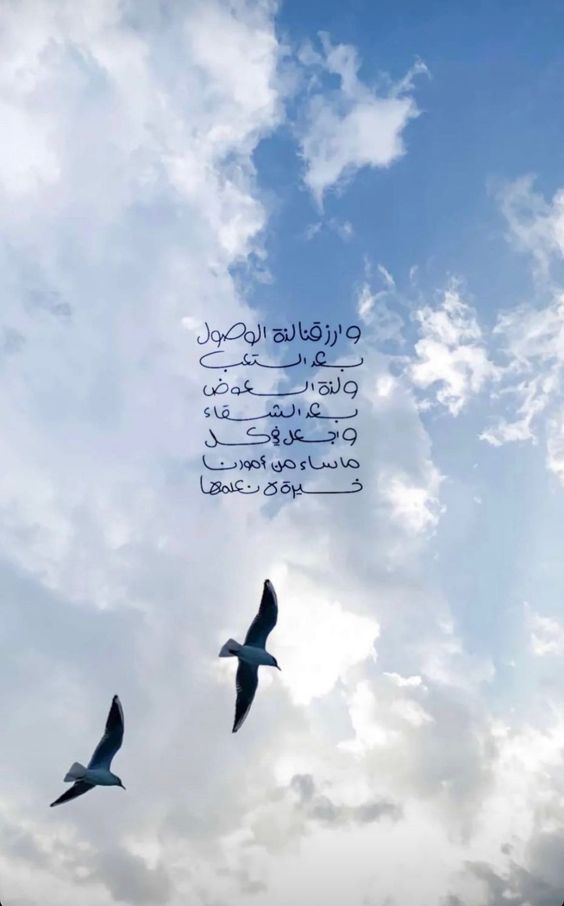 وارزقنا لذة الوصول
بعد التعب
ولذة العوض
بعد الشقاء
واجعل في كل
ما ساء من أمورنا
خيرة لا نعلمها